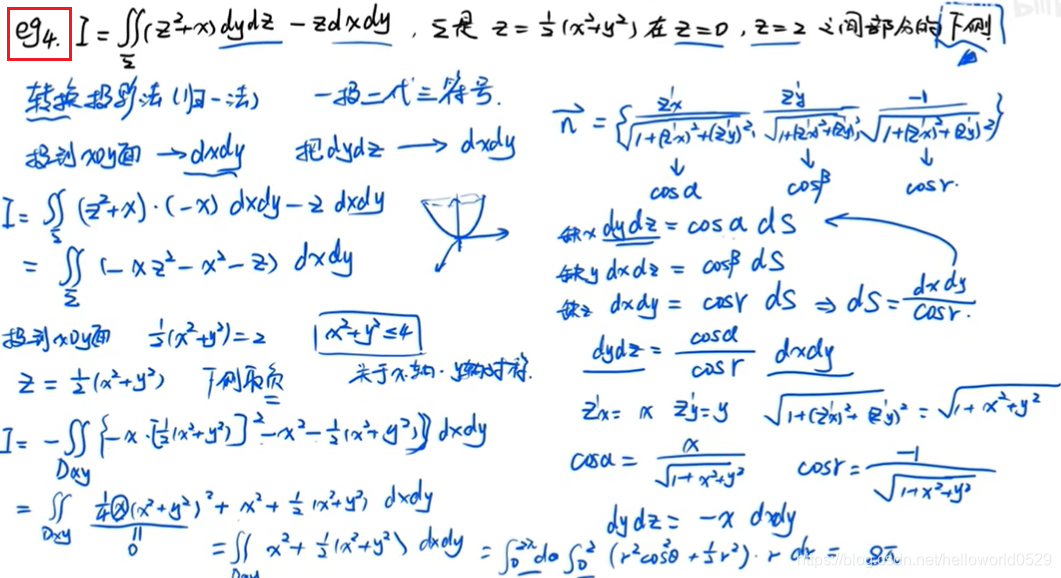 eg4. I = ∬_Σ (z²+x) dydz − z dxdy , Σ是 z = ½(x²+y²) 在 z=0 , z=2 之间部分的下侧
转换投影法 (归一法) 一投二代三符号.
投到xoy面 → dxdy 把dydz → dxdy
I = ∬_Σ (z²+x)·(−x) dxdy − z dxdy
= ∬_Σ (−xz² − x² − z) dxdy
投到xoy面 ½(x²+y²)=2 x²+y²≤4
z = ½(x²+y²) 下侧取负 关于x轴、y轴对称.
I = −∬_Dxy {−x·[½(x²+y²)]² − x² − ½(x²+y²)} dxdy
= ∬_Dxy ¼x(x²+y²)² + x² + ½(x²+y²) dxdy
0
= ∬_Dxy x² + ½(x²+y²) dxdy = ∫₀^2π dθ ∫₀² (r²cos²θ + ½r²)·r dr = 8π
n⃗ = { z'x / √(1+(z'x)²+(z'y)²) , z'y / √(1+(z'x)²+(z'y)²) , −1 / √(1+(z'x)²+(z'y)²) }
↓ ↓ ↓
cosα cosβ cosγ.
缺x dydz = cosα dS
缺y dxdz = cosβ dS
缺z dxdy = cosγ dS ⇒ dS = dxdy / cosγ.
dydz = cosα / cosγ dxdy
z'x = x z'y = y √(1+(z'x)²+(z'y)²) = √(1+x²+y²)
cosα = x / √(1+x²+y²) cosγ = −1 / √(1+x²+y²)
dydz = −x dxdy
https://blog.csdn.net/helloworld0529